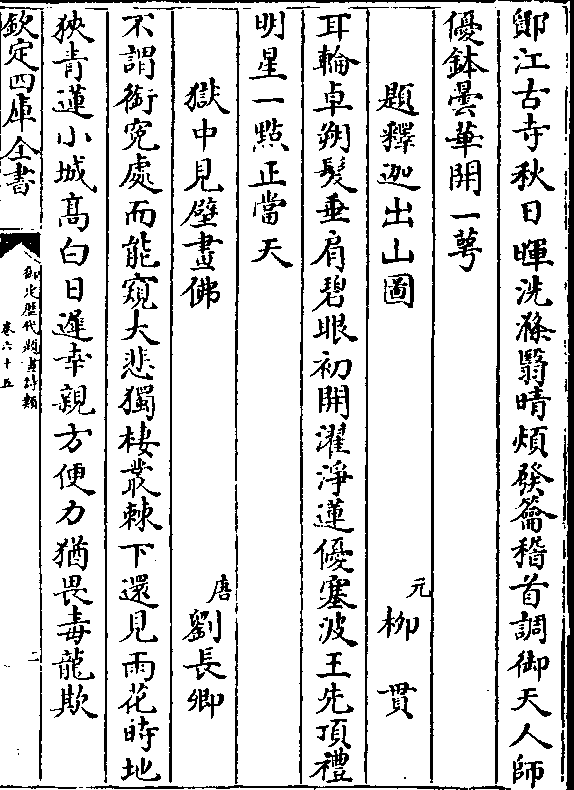 鄮江古寺秋日暉洗滌翳晴煩發籥稽首調御天人師
優鉢曇華開一萼
題釋迦出山圖
元 柳貫
耳輪卓朔髮垂肩碧眼初開濯淨蓮優塞波王先頂禮
明星一點正當天
獄中見壁畫佛
唐 劉長卿
不謂銜冤處而能窺大悲獨棲叢棘下還見雨花時地
狹青蓮小城高白日遲幸親方便力猶畏毒龍欺
欽定四庫全書
御定歷代題畫詩類
卷六十五
二